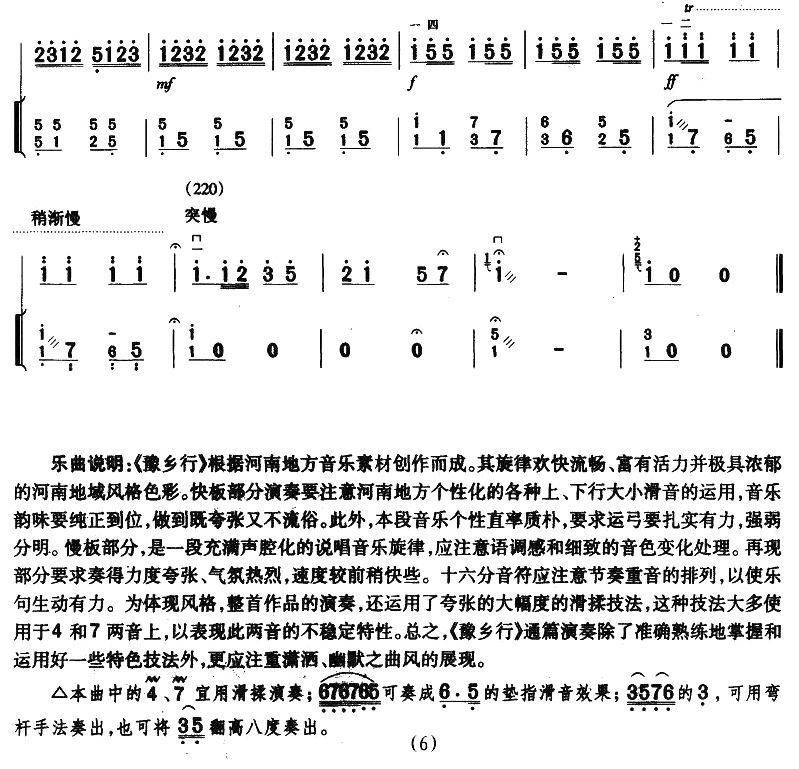 一 四
一 二 tr
2312 5123 | 1232 1232 | 1232 1232 | 155 155 | 155 155 | 111 11
mf f ff
5 5 5 5 | 5 5 | 5 5 | 1 7 | 6 5 | 1 -
5 1 2 5 | 1 5 1 5 | 1 5 1 5 | 1 1 3 7 | 3 6 2 5 | 1 7 6 5
(220)
稍渐慢 突慢
1 1 1 1 | 1·12 3 5 | 2 1 5 7 | 1 - | 1 0 0
1 - | 1 | | 5 | 3
1 7 6 5 | 1 0 0 | 0 0 | 1 - | 1 0 0
乐曲说明:《豫乡行》根据河南地方音乐素材创作而成。其旋律欢快流畅、富有活力并极具浓郁
的河南地域风格色彩。快板部分演奏要注意河南地方个性化的各种上、下行大小滑音的运用,音乐
韵味要纯正到位,做到既夸张又不流俗。此外,本段音乐个性直率质朴,要求运弓要扎实有力,强弱
分明。慢板部分,是一段充满声腔化的说唱音乐旋律,应注意语调感和细致的音色变化处理。再现
部分要求奏得力度夸张、气氛热烈,速度较前稍快些。十六分音符应注意节奏重音的排列,以使乐
句生动有力。为体现风格,整首作品的演奏,还运用了夸张的大幅度的滑揉技法,这种技法大多使
用于4 和7 两音上,以表现此两音的不稳定特性。总之,《豫乡行》通篇演奏除了准确熟练地掌握和
运用好一些特色技法外,更应注重潇洒、幽默之曲风的展现。
△本曲中的4、7 宜用滑揉演奏;676765可奏成6·5的垫指滑音效果;3576的3,可用弯
杆手法奏出,也可将35翻高八度奏出。
(6)